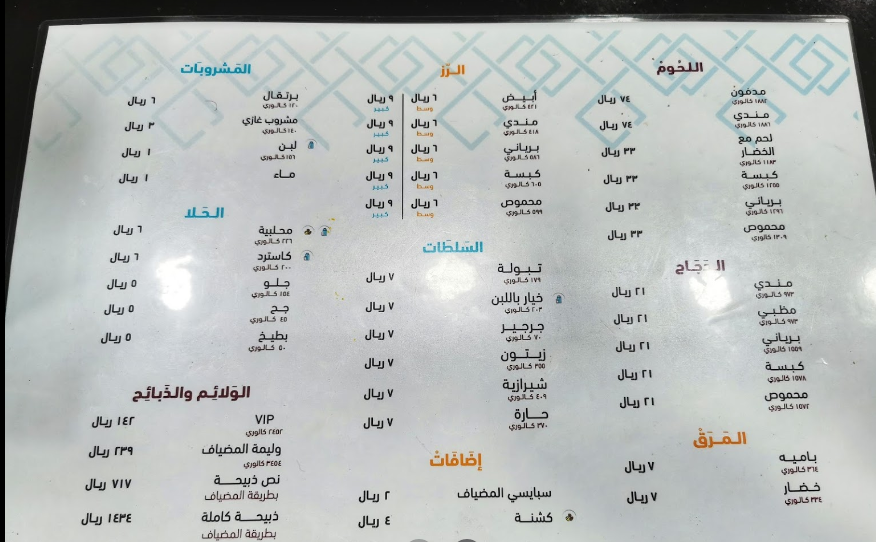 اللحوم
مدفون ٧٤ ريال
١٨٨٢ كالوري
مندي ٧٤ ريال
١٨٨٦ كالوري
لحم مع الخضار ٣٣ ريال
١١٨٣ كالوري
كبسة ٣٣ ريال
١٢٥٥ كالوري
برياني ٣٣ ريال
١٢٩٦ كالوري
محموص ٣٣ ريال
١٣٠٩ كالوري
الدجاج
مندي ٢١ ريال
٩٧٣ كالوري
مظبي ٢١ ريال
٩٧٣ كالوري
برياني ٢١ ريال
١٥٥٩ كالوري
كبسة ٢١ ريال
١٥٧٨ كالوري
محموص ٢١ ريال
١٥٧٢ كالوري
المرق
باميه ٧ ريال
٣١٤ كالوري
خضار ٧ ريال
٣٣٤ كالوري
الرز
أبيض ٦ ريال ٩ ريال
٤٢١ كالوري وسط كبير
مندي ٦ ريال ٩ ريال
٤١٨ كالوري وسط كبير
برياني ٦ ريال ٩ ريال
٥٨٦ كالوري وسط كبير
كبسة ٦ ريال ٩ ريال
٦٠٥ كالوري وسط كبير
محموص ٦ ريال ٩ ريال
٥٩٩ كالوري وسط كبير
السلطات
تبولة ٧ ريال
١٧٩ كالوري
خيار باللبن ٧ ريال
٢٠٣ كالوري
جرجير ٧ ريال
٧٠ كالوري
زيتون ٧ ريال
٣٥٥ كالوري
شيرازية ٧ ريال
٤٠٩ كالوري
حارة ٧ ريال
٣٧٠ كالوري
إضافات
سبايسي المضياف ٢ ريال
كشنة ٤ ريال
المشروبات
برتقال ٦ ريال
١٢٠ كالوري
مشروب غازي ٣ ريال
١٤٠ كالوري
لبن ١ ريال
١٥٦ كالوري
ماء ١ ريال
الحلا
محلبية ٦ ريال
٢٢٦ كالوري
كاسترد ٦ ريال
٢٠٠ كالوري
جلو ٥ ريال
١٥٤ كالوري
جح ٥ ريال
٤٥ كالوري
بطيخ ٥ ريال
٥٠ كالوري
الولائم والذبائح
VIP ١٤٢ ريال
٢٤٥٢ كالوري
وليمة المضياف ٢٣٩ ريال
٣٤٥٤ كالوري
نص ذبيحة ٧١٧ ريال
بطريقة المضياف
ذبيحة كاملة ١٤٣٤ ريال
بطريقة المضياف